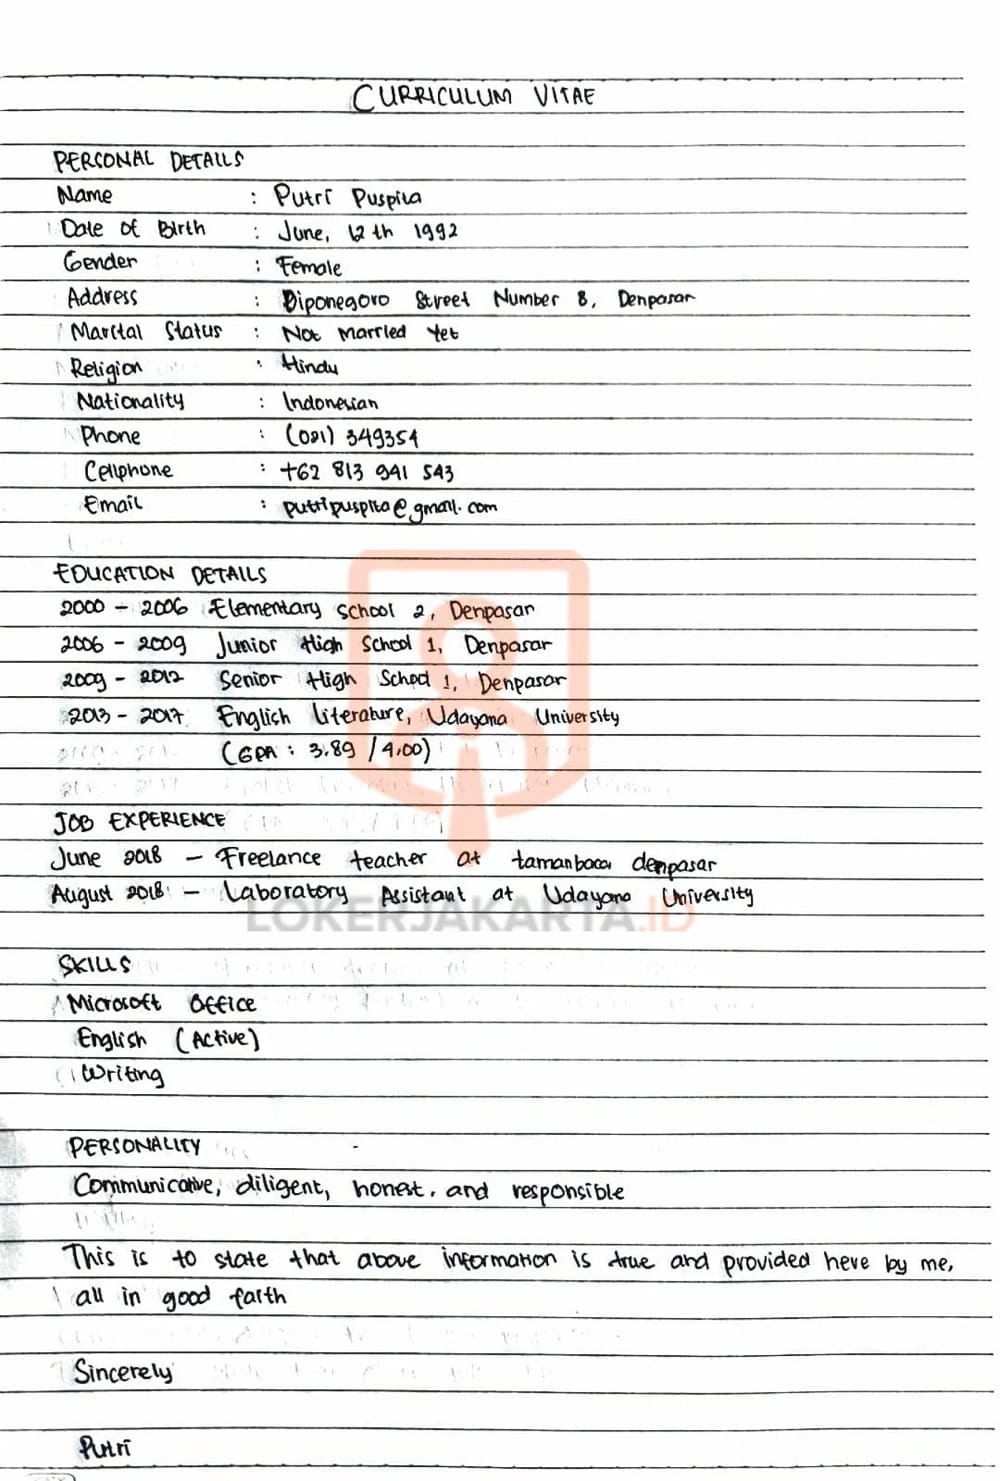 CURRICULUM VITAE
PERSONAL DETAILS
Name : Putri Puspita
Date of Birth : June, 12 th 1992
Gender : Female
Address : Diponegoro Street Number 8, Denpasar
Marital Status : Not Married Yet
Religion : Hindu
Nationality : Indonesian
Phone : (021) 349354
Cellphone : +62 813 941 543
Email : putripuspita@gmail.com
EDUCATION DETAILS
2000 - 2006 Elementary School 2, Denpasar
2006 - 2009 Junior High School 1, Denpasar
2009 - 2012 Senior High School 1, Denpasar
2013 - 2017 English Literature, Udayana University
(GPA : 3.89 / 4.00)
JOB EXPERIENCE
June 2018 - Freelance teacher at tamanbaca denpasar
August 2018 - Laboratory Assistant at Udayana University
LOKERJAKARTA.ID
SKILLS
Microsoft Office
English (Active)
Writing
PERSONALITY
Communicative, diligent, honest, and responsible
This is to state that above information is true and provided here by me,
all in good faith
Sincerely
Putri